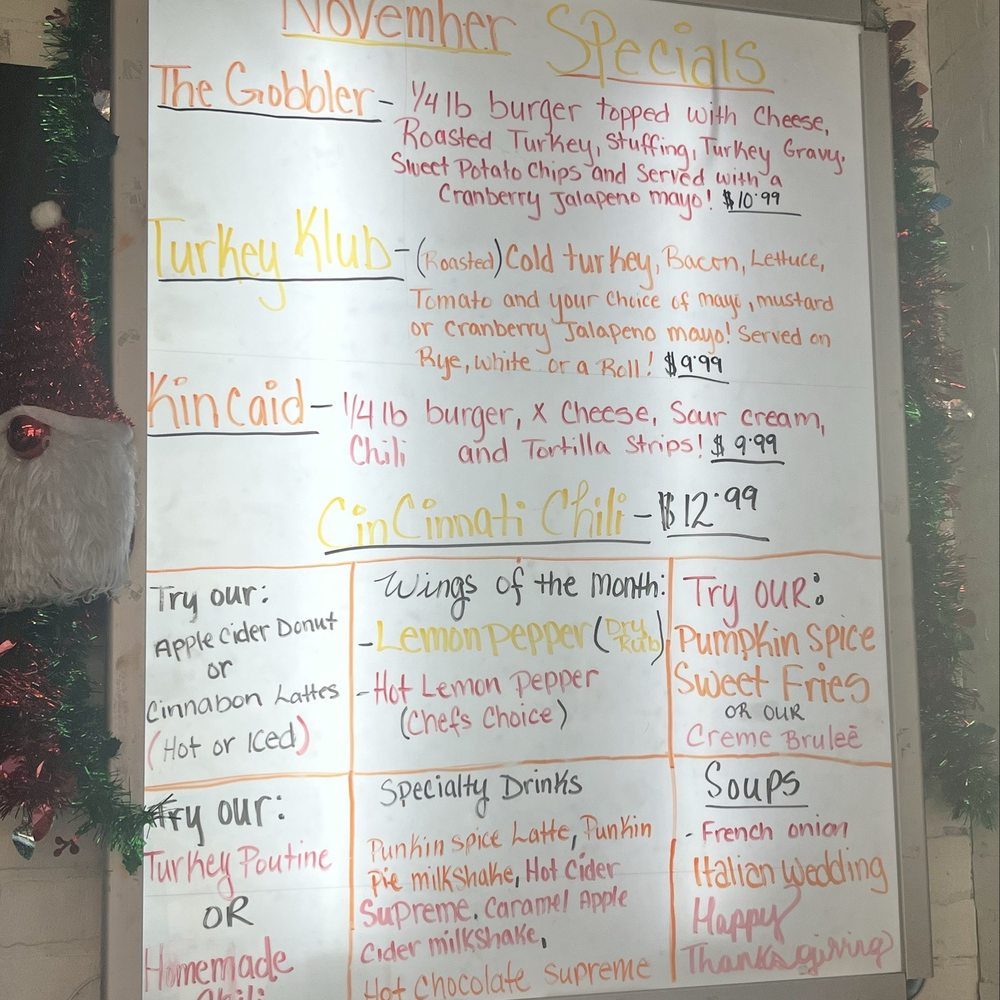 November Specials
The Gobbler - 1/4 lb burger topped with Cheese,
Roasted Turkey, Stuffing, Turkey Gravy,
Sweet Potato Chips and Served with a
Cranberry Jalapeno mayo! $10.99
Turkey Klub - (Roasted) Cold turkey, Bacon, Lettuce,
Tomato and your Choice of mayo, mustard
or Cranberry Jalapeno mayo! Served on
Rye, white or a Roll! $9.99
Kincaid - 1/4 lb burger, x Cheese, Sour cream,
Chili and Tortilla Strips! $9.99
CinCinnati Chili - $12.99
Try our:
Apple Cider Donut
or
Cinnabon Lattes
(Hot or Iced)
Wings of the month:
- Lemon Pepper (Dry Rub)
- Hot Lemon Pepper
(Chefs Choice)
Try our:
Pumpkin Spice
Sweet Fries
OR OUR
Creme Bruleē
Try our:
Turkey Poutine
OR
Homemade
Chili
Specialty Drinks
Punkin spice Latte, Punkin
Pie milkshake, Hot Cider
Supreme. Caramel Apple
Cider milkshake,
Hot Chocolate Supreme
Soups
- French onion
Italian Wedding
Happy
Thanksgiving